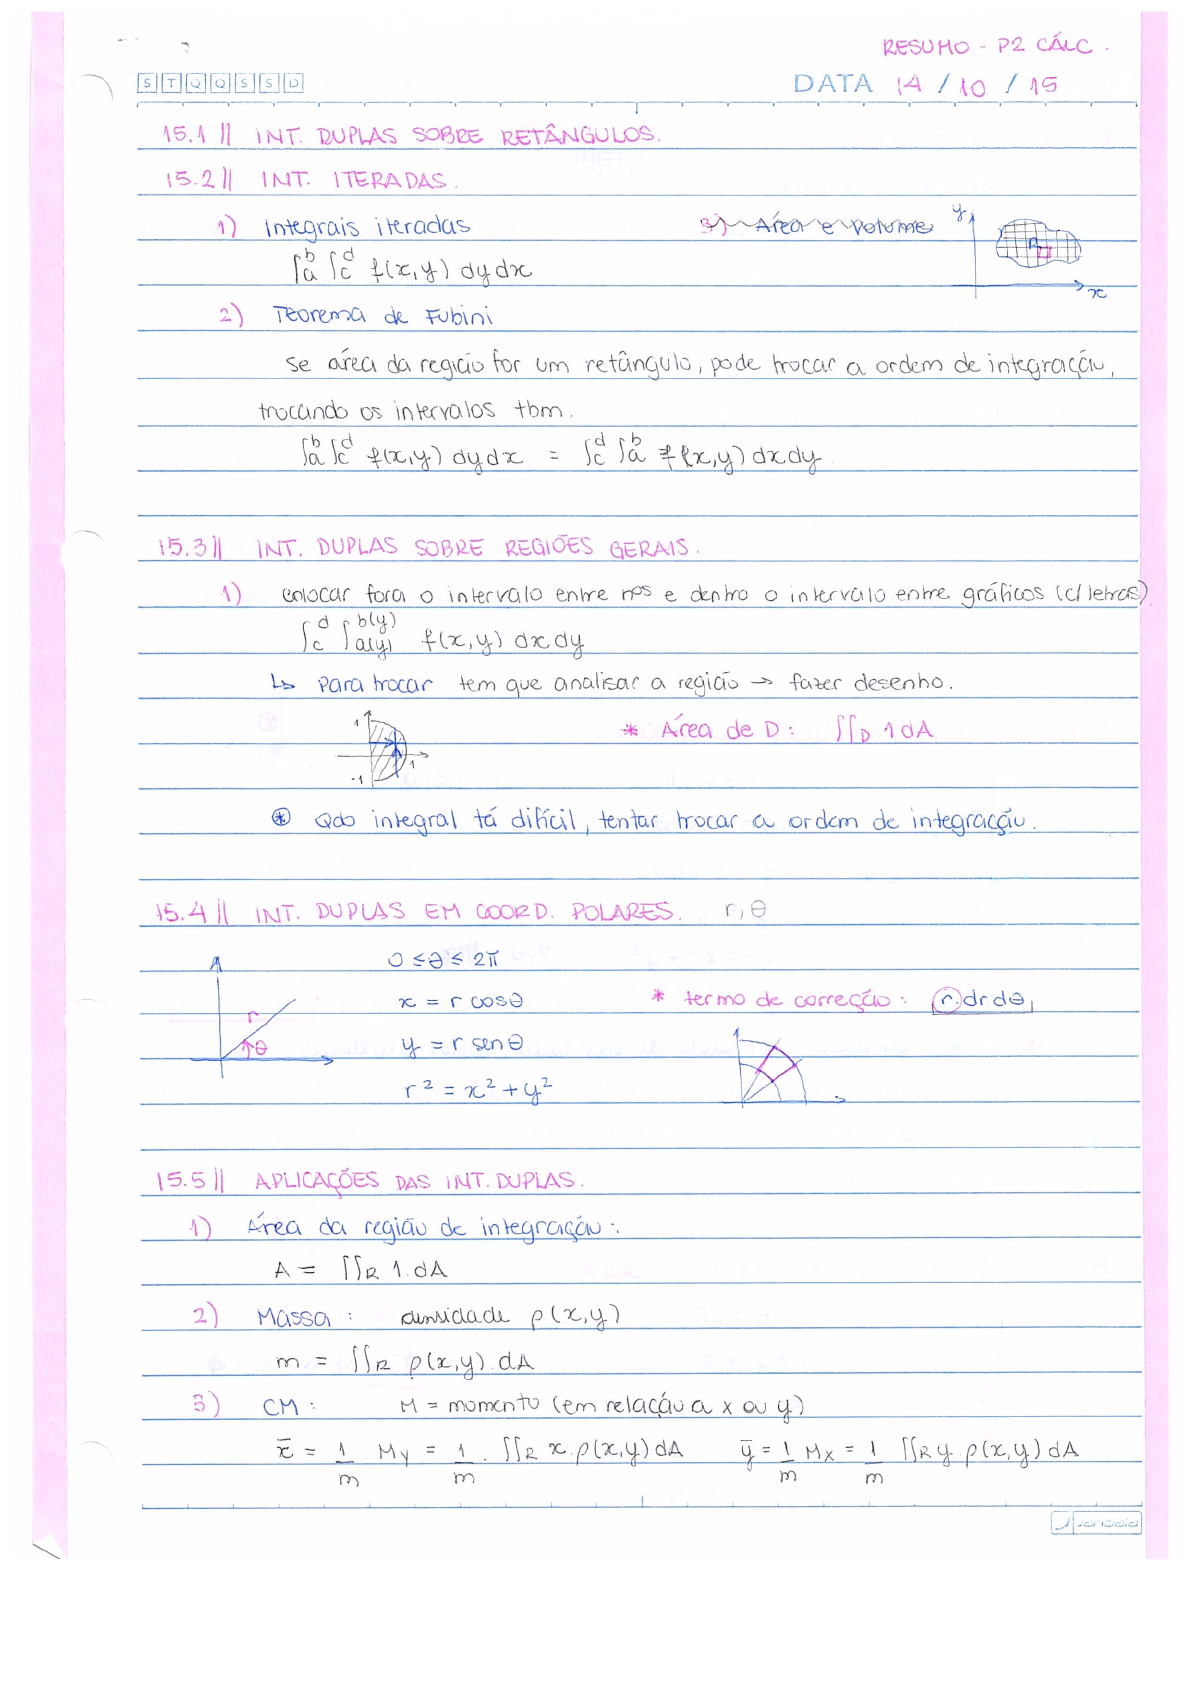 RESUMO - P2 CÁLC.
S T Q Q S S D
DATA 14 / 10 / 15
15.1 || INT. DUPLAS SOBRE RETÂNGULOS.
15.2 || INT. ITERADAS.
1) integrais iteradas
3) Área e volume
y
R
x
∫a^b ∫c^d f(x,y) dy dx
2) Teorema de Fubini
se área da região for um retângulo, pode trocar a ordem de integração,
trocando os intervalos tbm.
∫a^b ∫c^d f(x,y) dy dx = ∫c^d ∫a^b f(x,y) dx dy
15.3 || INT. DUPLAS SOBRE REGIÕES GERAIS.
1) colocar fora o intervalo entre nos e dentro o intervalo entre gráficos (c/ letras)
∫c^d ∫a(y)^b(y) f(x,y) dx dy
↳ Para trocar tem que analisar a região → fazer desenho.
1
1
-1
* Área de D: ∫∫D 1 dA
⊛ Qdo integral tá difícil, tentar trocar a ordem de integração.
15.4 || INT. DUPLAS EM COORD. POLARES. r, θ
r
θ
0 ≤ θ ≤ 2π
x = r cos θ
y = r sen θ
r² = x² + y²
* termo de correção: r. dr dθ
15.5 || APLICAÇÕES DAS INT. DUPLAS.
1) Área da região de integração:
A = ∫∫R 1. dA
2) Massa: densidade ρ(x,y)
m = ∫∫R ρ(x,y). dA
3) CM: M = momento (em relação a x ou y)
x̄ = 1/m My = 1/m . ∫∫R x. ρ(x,y) dA ȳ = 1/m Mx = 1/m ∫∫R y. ρ(x,y) dA
jandaia